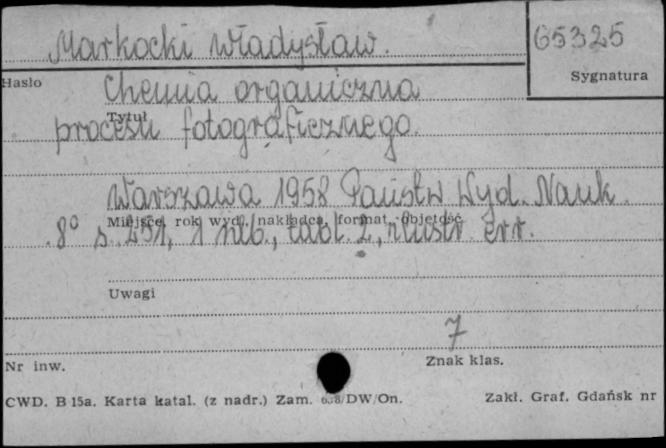 Markocki Władysław.
65325
Hasło
Sygnatura
Chemia organiczna
Tytuł
procesu fotograficznego.
Warszawa 1958 Państw Wyd. Nauk.
Miejsce, rok wyd., nakładca, format, objętość
8° s. 251, 1 nlb., tabl. 2, ilustr. err.
Uwagi
7
Nr inw.
Znak klas.
CWD. B 15a. Karta katal. (z nadr.) Zam. /DW/On.
Zakł. Graf. Gdańsk nr